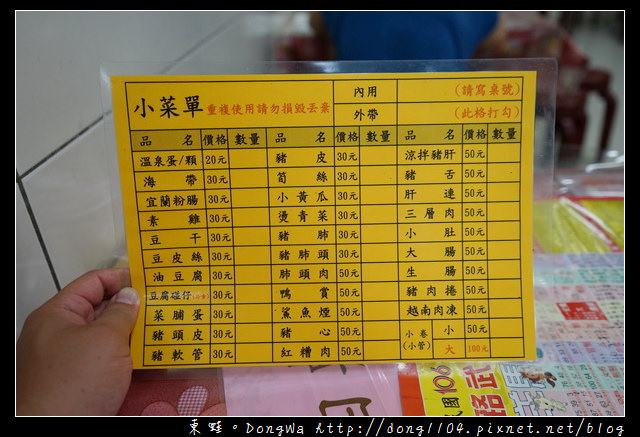 小菜單 重複使用請勿損毀丟棄
內用 (請寫桌號)
外帶 (此格打勾)
品名 價格 數量 品名 價格 數量 品名 價格 數量
溫泉蛋/顆 20元 豬皮 30元 涼拌豬肝 50元
海帶 30元 筍絲 30元 豬舌 50元
宜蘭粉腸 30元 小黃瓜 30元 肝連 50元
素雞 30元 燙青菜 30元 三層肉 50元
豆干 30元 豬肺 30元 小肚 50元
豆皮絲 30元 豬肺頭 30元 大腸 50元
油豆腐 30元 肺頭肉 50元 生腸 50元
豆腐碰仔 30元 鴨賞 50元 豬肉捲 50元
菜脯蛋 30元 鯊魚煙 50元 越南肉凍 50元
豬頭皮 30元 豬心 50元 小卷(小管) 小 50元
豬軟管 30元 紅糟肉 50元 大 100元
國106
東蛙。DongWa http://dong1104.pixnet.net/blog